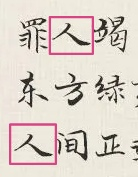 罪人竭
东方绿
人间正